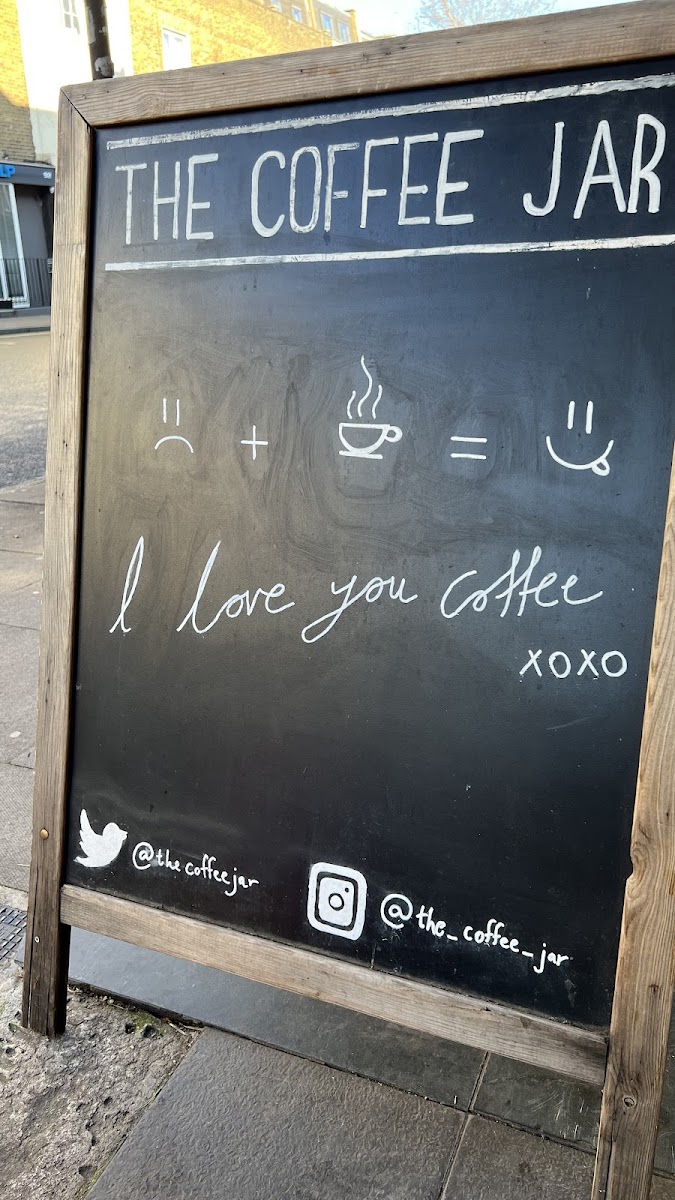 THE COFFEE JAR
+ =
I love you coffee
xoxo
@thecoffeejar
@the_coffee_jar